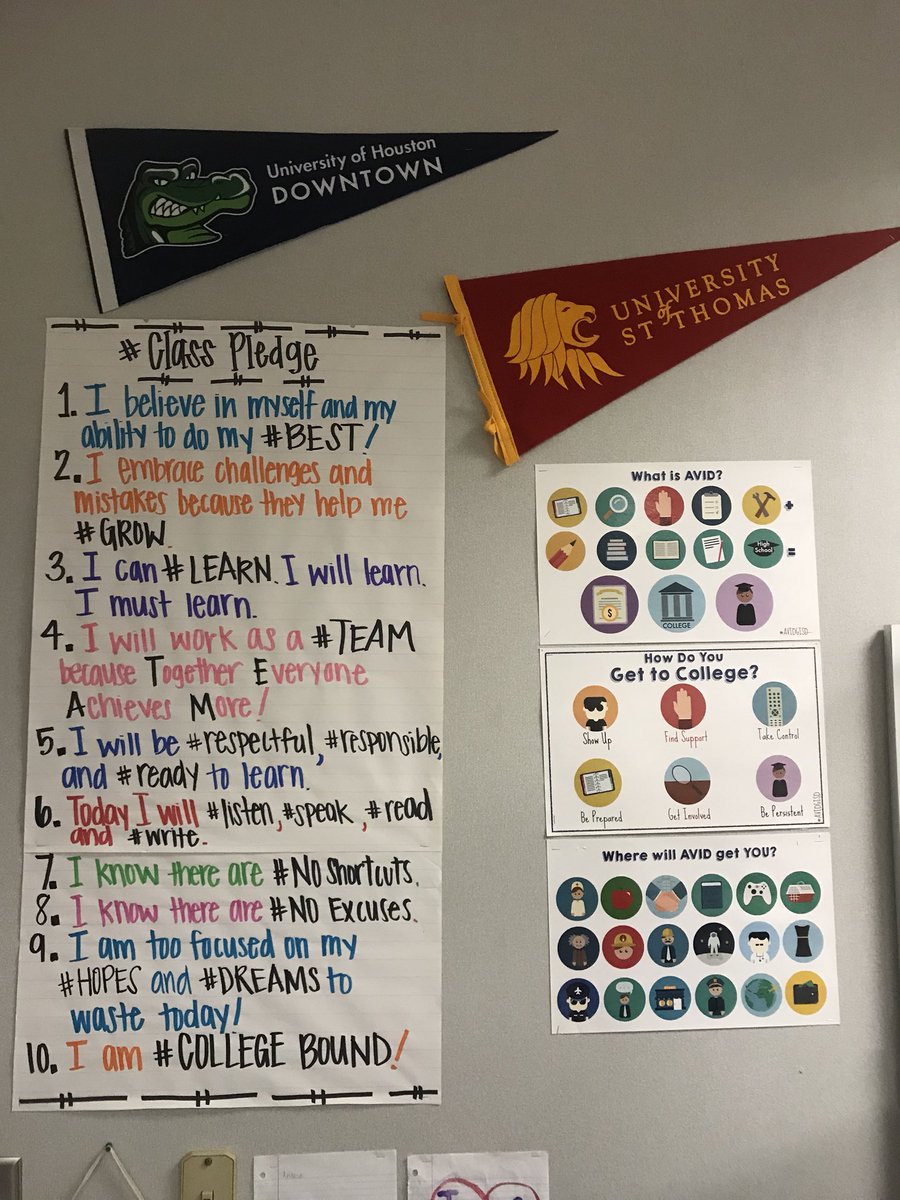 University of Houston
DOWNTOWN
UNIVERSITY
of
ST THOMAS
#Class Pledge
1. I believe in myself and my
ability to do my #BEST!
2. I embrace challenges and
mistakes because they help me
#GROW.
3. I can #LEARN. I will learn.
I must learn.
4. I will work as a #TEAM
because Together Everyone
Achieves More!
5. I will be #respectful, #responsible,
and #ready to learn.
6. Today I will #listen, #speak, #read
and #write.
7. I know there are #NO Shortcuts.
8. I know there are #NO Excuses.
9. I am too focused on my
#HOPES and #DREAMS to
waste today!
10. I am #COLLEGE BOUND!
What is AVID?
+
High
School
=
$
COLLEGE
#AVIDGISD
How Do You
Get to College?
Show Up
Find Support
Take Control
Be Prepared
Get Involved
Be Persistent
#AVIDGISD
Where will AVID get YOU?